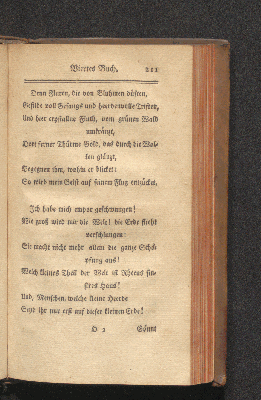 Viertes Buch. 211
Denn Fluren, die von Bluhmen düften,
Gefilde voll Gesangs und heerdenvolle Triften,
Und hier crystallne Fluth, vom grünen Wald
umkränzt,
Dort ferner Thürme Gold, das durch die Wol-
ken glänzt,
Begegnen ihm, wohin er blicket:
So wird mein Geist auf seinem Flug entzücket.
Ich habe mich empor geschwungen!
Wie groß wird mir die Welt! die Erde flieht
verschlungen:
Sie macht nicht mehr allein die ganze Schö-
pfung aus!
Welch kleines Theil der Welt ist Rheens fin-
stres Haus!
Und, Menschen, welche kleine Heerde
Seyd ihr nur erst auf dieser kleinen Erde!
O 2 Gönnt